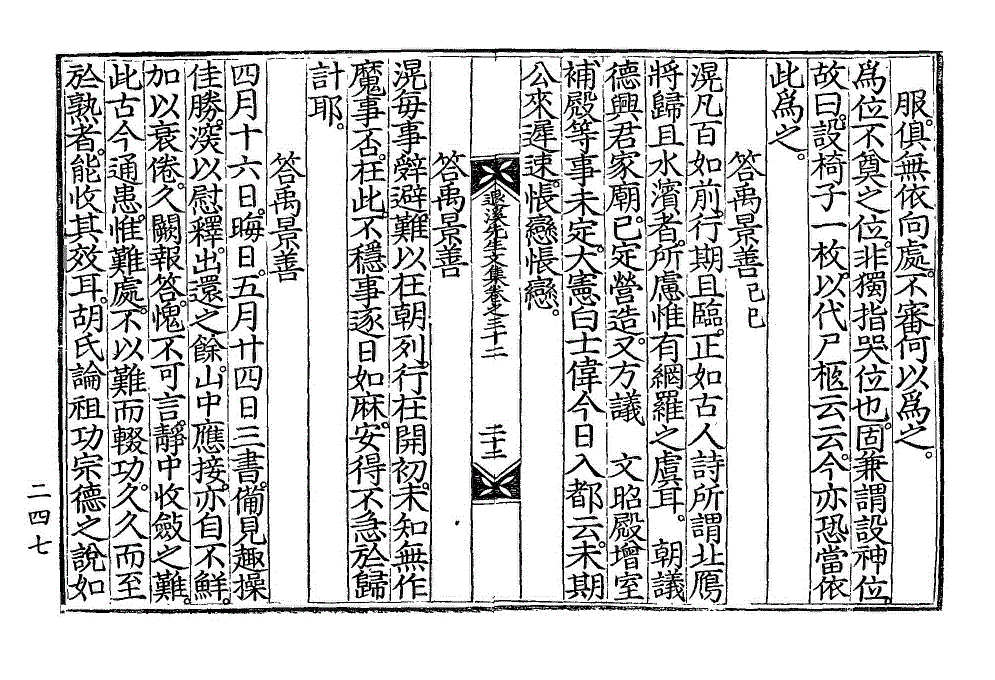 服。俱無依向處。不審何以爲之。
爲位不奠之位。非獨指哭位也。固兼謂設神位。
故曰。設椅子一枚。以代尸柩云云。今亦恐當依
此爲之。
答禹景善 己巳
滉凡百如前。行期且臨。正如古人詩所謂北鴈
將歸且水濱者。所慮惟有網羅之虞耳。 朝議
德興君家廟。已定營造。又方議 文昭殿增室
補殿等事未定。大憲白士偉今日入都云。未期
公來遲速。悵戀悵戀。
退溪先生文集卷之三十二
二十二
答禹景善
滉每事辭避。難以在朝列。行在開初。未知無作
魔事否。在此。不穩事逐日如麻。安得不急於歸
計耶。
答禹景善
四月十六日晦日。五月廿四日三書。備見趣操
佳勝。深以慰釋。出還之餘。山中應接。亦自不鮮。
加以衰倦。久闕報答。愧不可言。靜中收斂之難。
此古今通患。惟難處。不以難而輟功。久久而至
於熟者。能收其效耳。胡氏論祖功宗德之說如
二四七